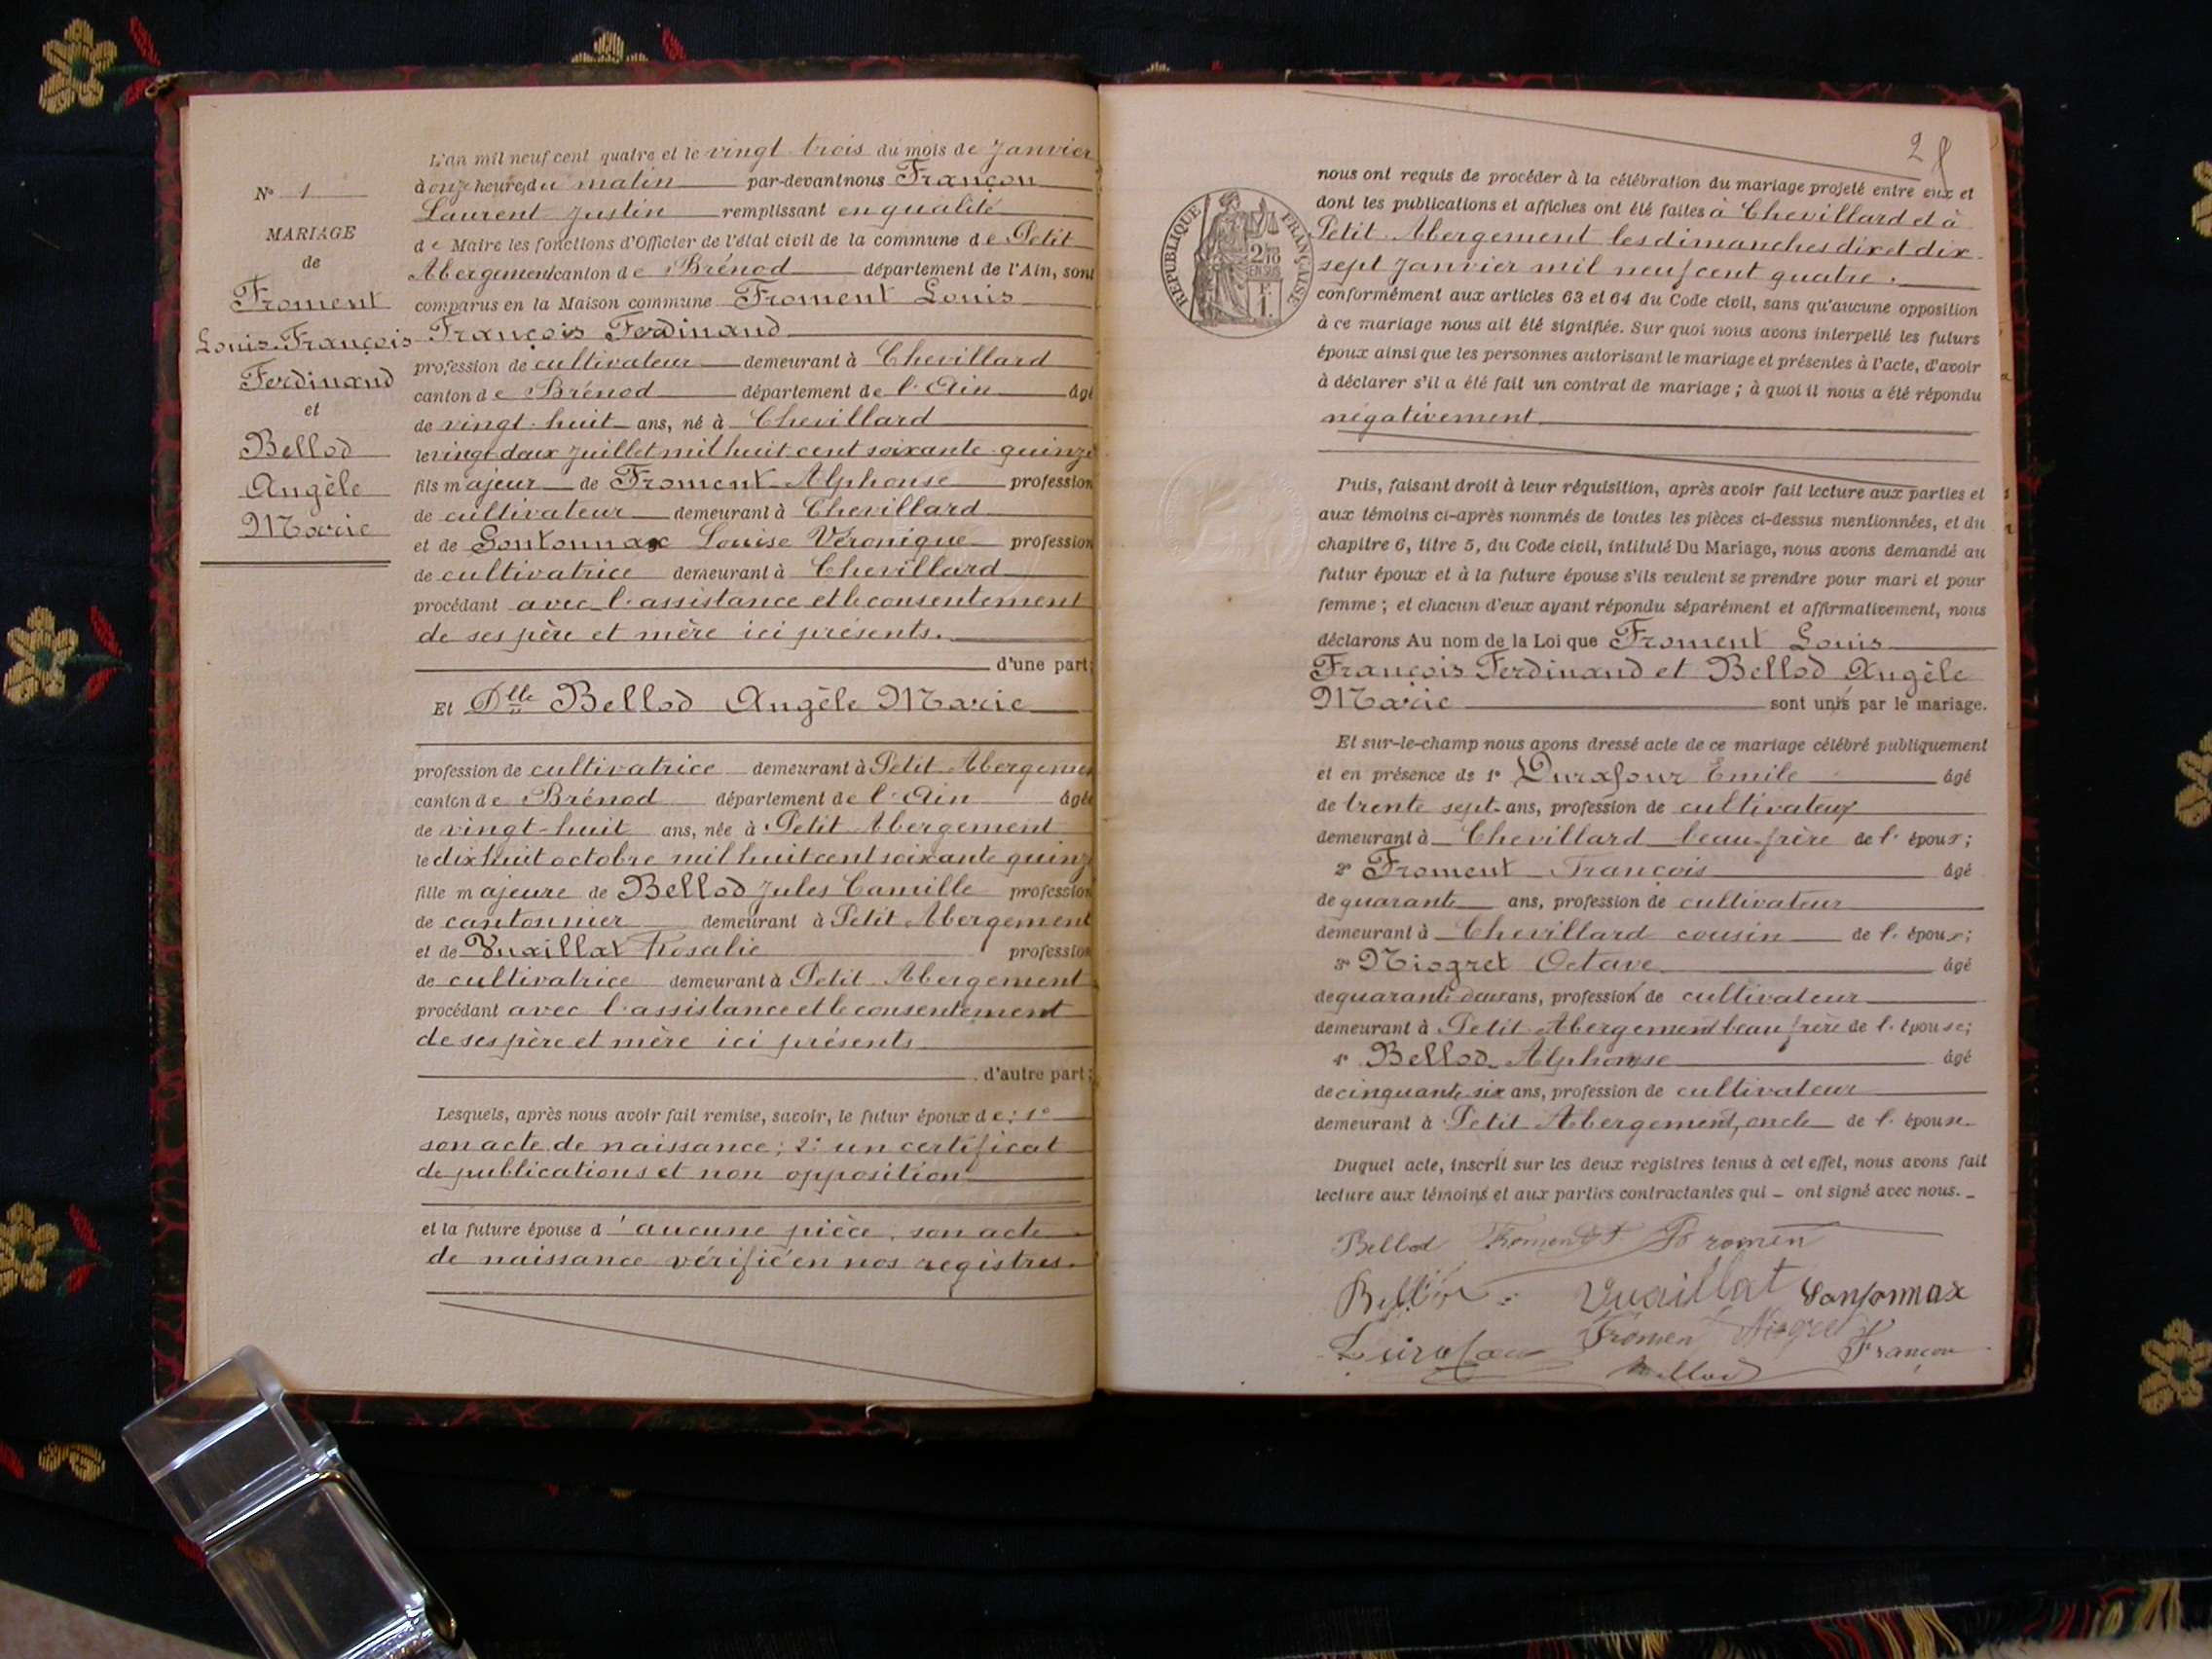 N° 1
MARIAGE
de
Froment
Louis François
Ferdinand
et
Bellod
Angèle
Marie
L'an mil neuf cent quatre et le vingt trois du mois de Janvier
à onze heures du matin par-devant nous Françon
Laurent Justin remplissant en qualité
de Maire les fonctions d'Officier de l'état civil de la commune de Petit
Abergement canton de Brénod département de l'Ain, sont
comparus en la Maison commune Froment Louis
François Ferdinand
profession de cultivateur demeurant à Chevillard
canton de Brénod département de l'Ain âgé
de vingt-huit ans, né à Chevillard
le vingt deux Juillet mil huit cent soixante quinze
fils majeur de Froment Alphonse profession
de cultivateur demeurant à Chevillard
et de Gontonnax Louise Véronique profession
de cultivatrice demeurant à Chevillard
procédant avec l'assistance et le consentement
de ses père et mère ici présents.
d'une part;
Et Dlle Bellod Angèle Marie
profession de cultivatrice demeurant à Petit Abergement
canton de Brénod département de l'Ain âgée
de vingt-huit ans, née à Petit Abergement
le dix huit octobre mil huit cent soixante quinze
fille majeure de Bellod Jules Camille profession
de cantonnier demeurant à Petit Abergement
et de Vuaillat Rosalie profession
de cultivatrice demeurant à Petit Abergement
procédant avec l'assistance et le consentement
de ses père et mère ici présents
d'autre part;
Lesquels, après nous avoir fait remise, savoir, le futur époux de: 1°
son acte de naissance; 2° un certificat
de publications et non opposition
et la future épouse d'aucune pièce, son acte
de naissance vérifié en nos registres.
2
RÉPUBLIQUE FRANÇAISE
2/10
EN SUS
F.
1.
nous ont requis de procéder à la célébration du mariage projeté entre eux et
dont les publications et affiches ont été faites à Chevillard et à
Petit Abergement les dimanches dix et dix-
sept Janvier mil neuf cent quatre.
conformément aux articles 63 et 64 du Code civil, sans qu'aucune opposition
à ce mariage nous ait été signifiée. Sur quoi nous avons interpellé les futurs
époux ainsi que les personnes autorisant le mariage et présentes à l'acte, d'avoir
à déclarer s'il a été fait un contrat de mariage; à quoi il nous a été répondu
négativement
Puis, faisant droit à leur réquisition, après avoir fait lecture aux parties et
aux témoins ci-après nommés de toutes les pièces ci-dessus mentionnées, et du
chapitre 6, titre 5, du Code civil, intitulé Du Mariage, nous avons demandé au
futur époux et à la future épouse s'ils veulent se prendre pour mari et pour
femme; et chacun d'eux ayant répondu séparément et affirmativement, nous
déclarons Au nom de la Loi que Froment Louis
François Ferdinand et Bellod Angèle
Marie sont unis par le mariage.
Et sur-le-champ nous avons dressé acte de ce mariage célébré publiquement
et en présence de 1° Durafour Emile âgé
de trente sept ans, profession de cultivateur
demeurant à Chevillard beau-frère de l'époux;
2° Froment François âgé
de quarante ans, profession de cultivateur
demeurant à Chevillard cousin de l'époux;
3° Niogret Octave âgé
de quarante deux ans, profession de cultivateur
demeurant à Petit Abergement beau frère de l'épouse;
4° Bellod Alphonse âgé
de cinquante six ans, profession de cultivateur
demeurant à Petit Abergement, oncle de l'épouse.
Duquel acte, inscrit sur les deux registres tenus à cet effet, nous avons fait
lecture aux témoins et aux parties contractantes qui ont signé avec nous.
Bellod Froment Froment
Bellod Vuaillat Gontonnax
Durafour Froment Niogret Françon
Bellod